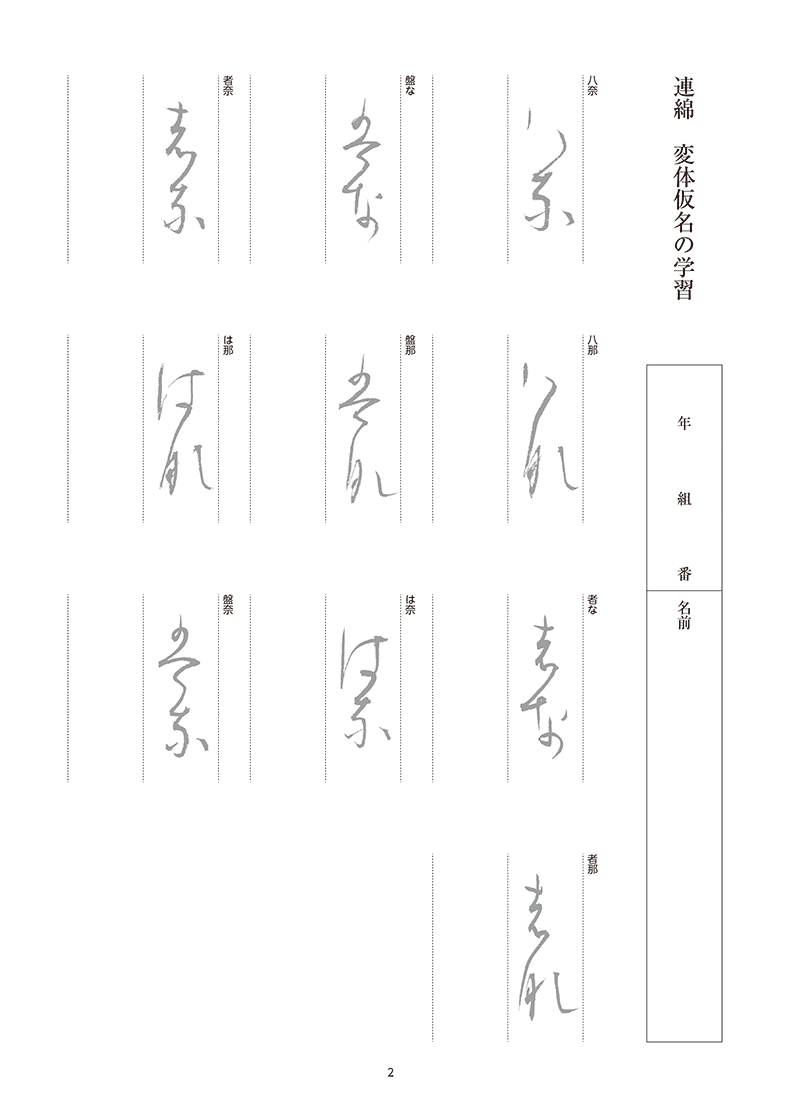 連綿　変体仮名の学習
年　組　番
名前
八奈
八那
者な
者那
盤な
盤那
は奈
者奈
は那
盤奈
2